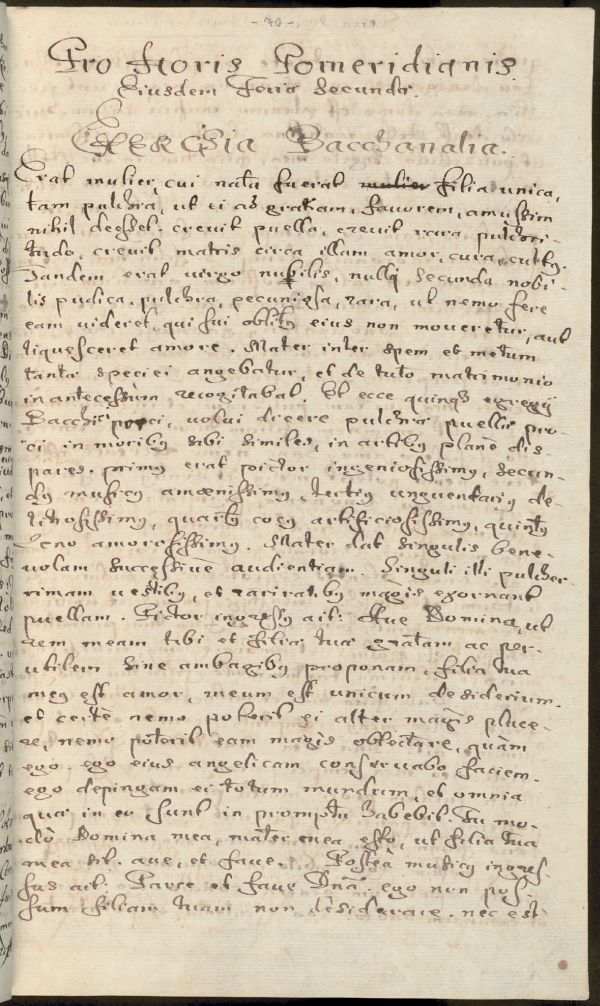 - 70 -
Pro Horis Pomeridianis.
Eiusdem Feriae Secundae.
Bacchanalia.
Erat mulier, cui nata fuerat mulier filia unica,
tam pulchra, ut ei ad gratiam, favorem, amussim
nihil deesset. crevit puella, crevit rara pulchri-
tudo, crevit matris circa illam amor, cura, cultus.
Tandem erat virgo nubilis, nulli secunda, nobi-
lis pudica, pulchra, pecuniosa, rara, ut nemo fere
eam videret, qui sui oblitus eius non moveretur, aut
liquesceret amore. Mater inter spem et metum
tantae speciei angebatur, et de tuto matrimonio
in antecessum recogitabat. Et ecce quinque egregii
Bacchi porci, volui dicere pulchrae puellae pro-
ci in moribus sibi similes, in artibus plane dis-
pares. primus erat pictor ingeniosissimus, secun-
dus musicus amoenissimus, tertius unguentarius de-
licatissimus, quartus cocus artificiosissimus, quintus
leno amorosissimus. Mater dat singulis bene-
volam successive audientiam. Singuli illi pulcher-
rimam vestibus, et raritatibus magis exornant
puellam. Pictor ingressus ait: Ave Domina, ut
rem meam tibi et filiae tuae gratam ac per-
utilem sine ambagibus proponam, filia tua
meus est amor, meum est unicum desiderium.
et certe nemo poterit ei alter magis place-
re, nemo poterit eam magis oblectare, quam
ego. ego eius angelicam conservabo faciem.
ego depingam ei totum mundum, et omnia
quae in eo sunt in promptu habebit. Tu mo-
do Domina mea, mater mea esto, ut filia tua
mea sit. ave, et fave. Postea musicus ingres-
sus ait: Parce et fave Dna. ego non pos-
sum filiam tuam non desiderare. nec est